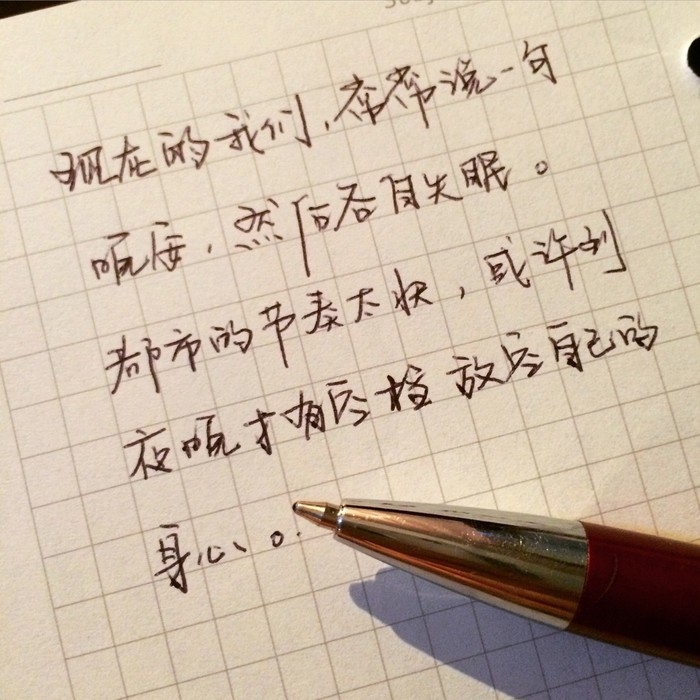 现在的我们，常常说一句
晚安，然后各自失眠。
都市的节奏太快，或许到
夜晚才有空档放空自己的
身心。